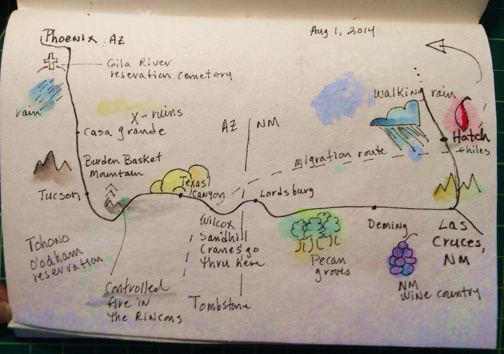 Phoenix AZ
Aug 1, 2014
Gila River
reservation cemetery
rain
X-ruins
Casa grande
walking rain
Hatch
chiles
AZ | NM
migration route
Burden Basket
Mountain
Texas
Canyon
Tucson
Lordsburg
Wilcox
Sandhill
Cranes go
thru here
Pecan
groves
Deming
Las
Cruces,
NM
Tohono
O'odham
reservation
Controlled
fire in
The Rincons
Tombstone
NM
Wine country